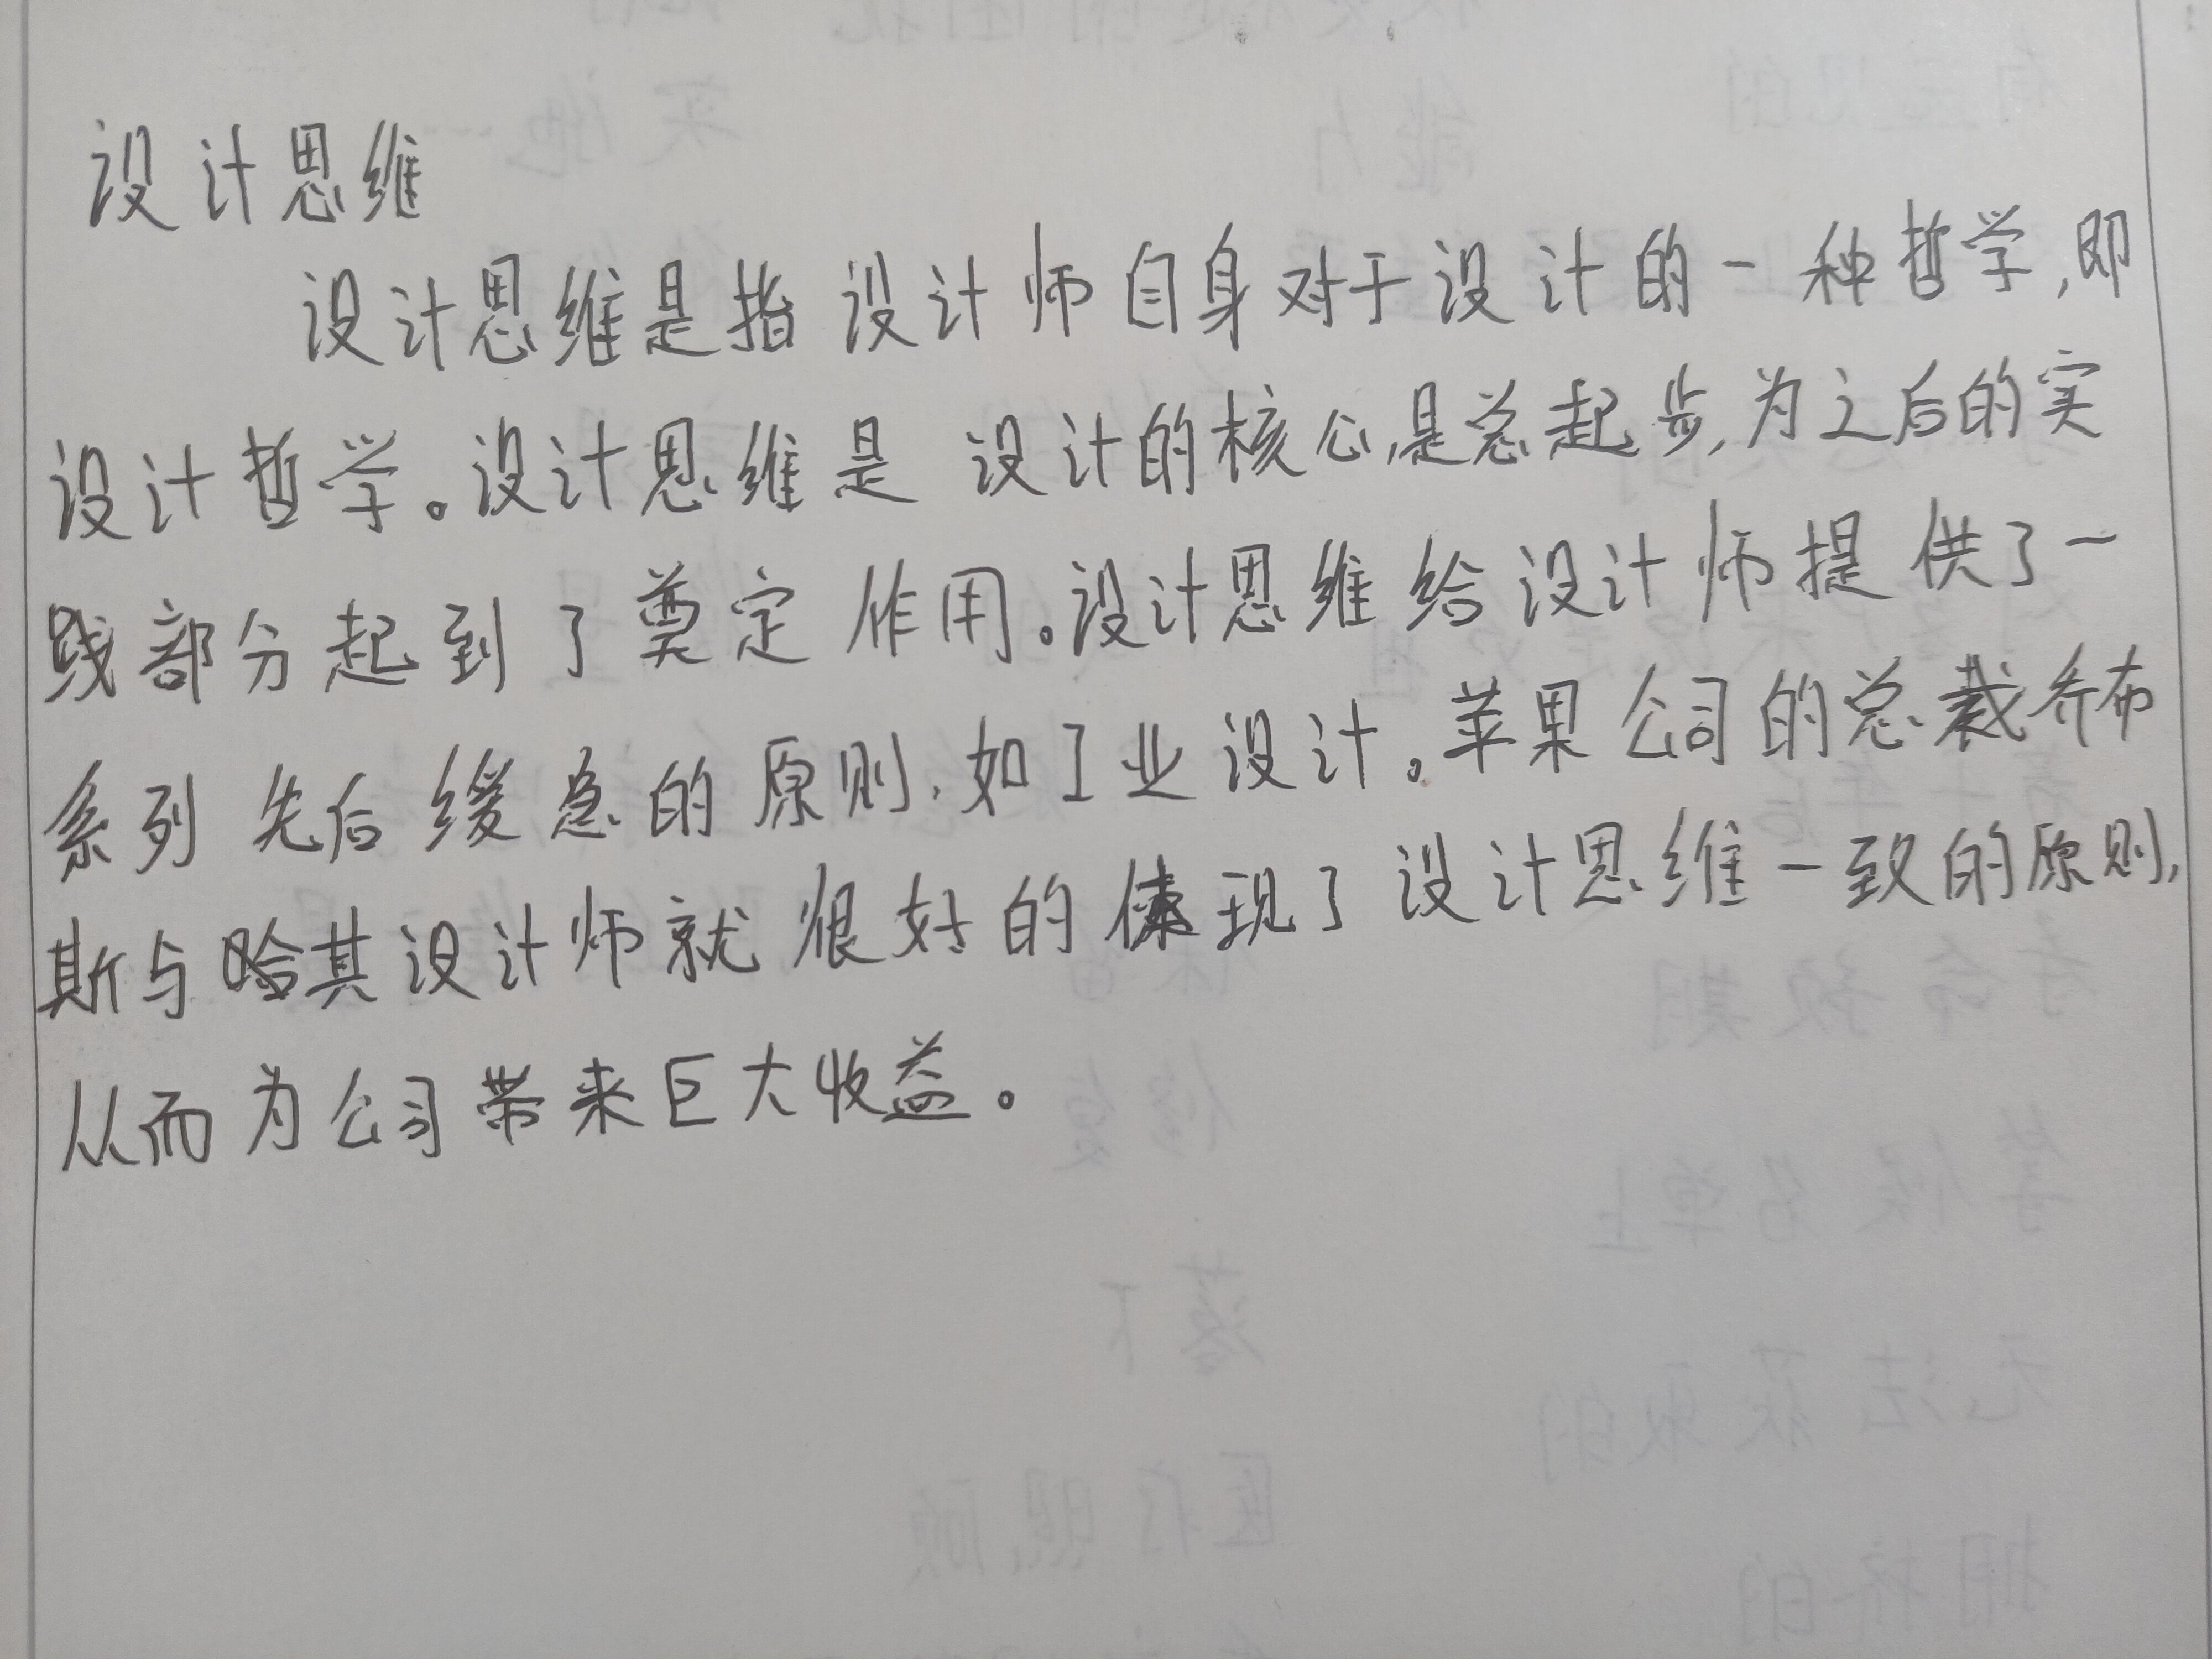 设计思维
设计思维是指设计师自身对于设计的一种哲学,即
设计哲学。设计思维是设计的核心,是总起步,为之后的实
践部分起到了奠定作用。设计思维给设计师提供了一
系列先后缓急的原则,如工业设计。苹果公司的总裁乔布
斯与哈其设计师就很好的体现了设计思维一致的原则,
从而为公司带来巨大收益。